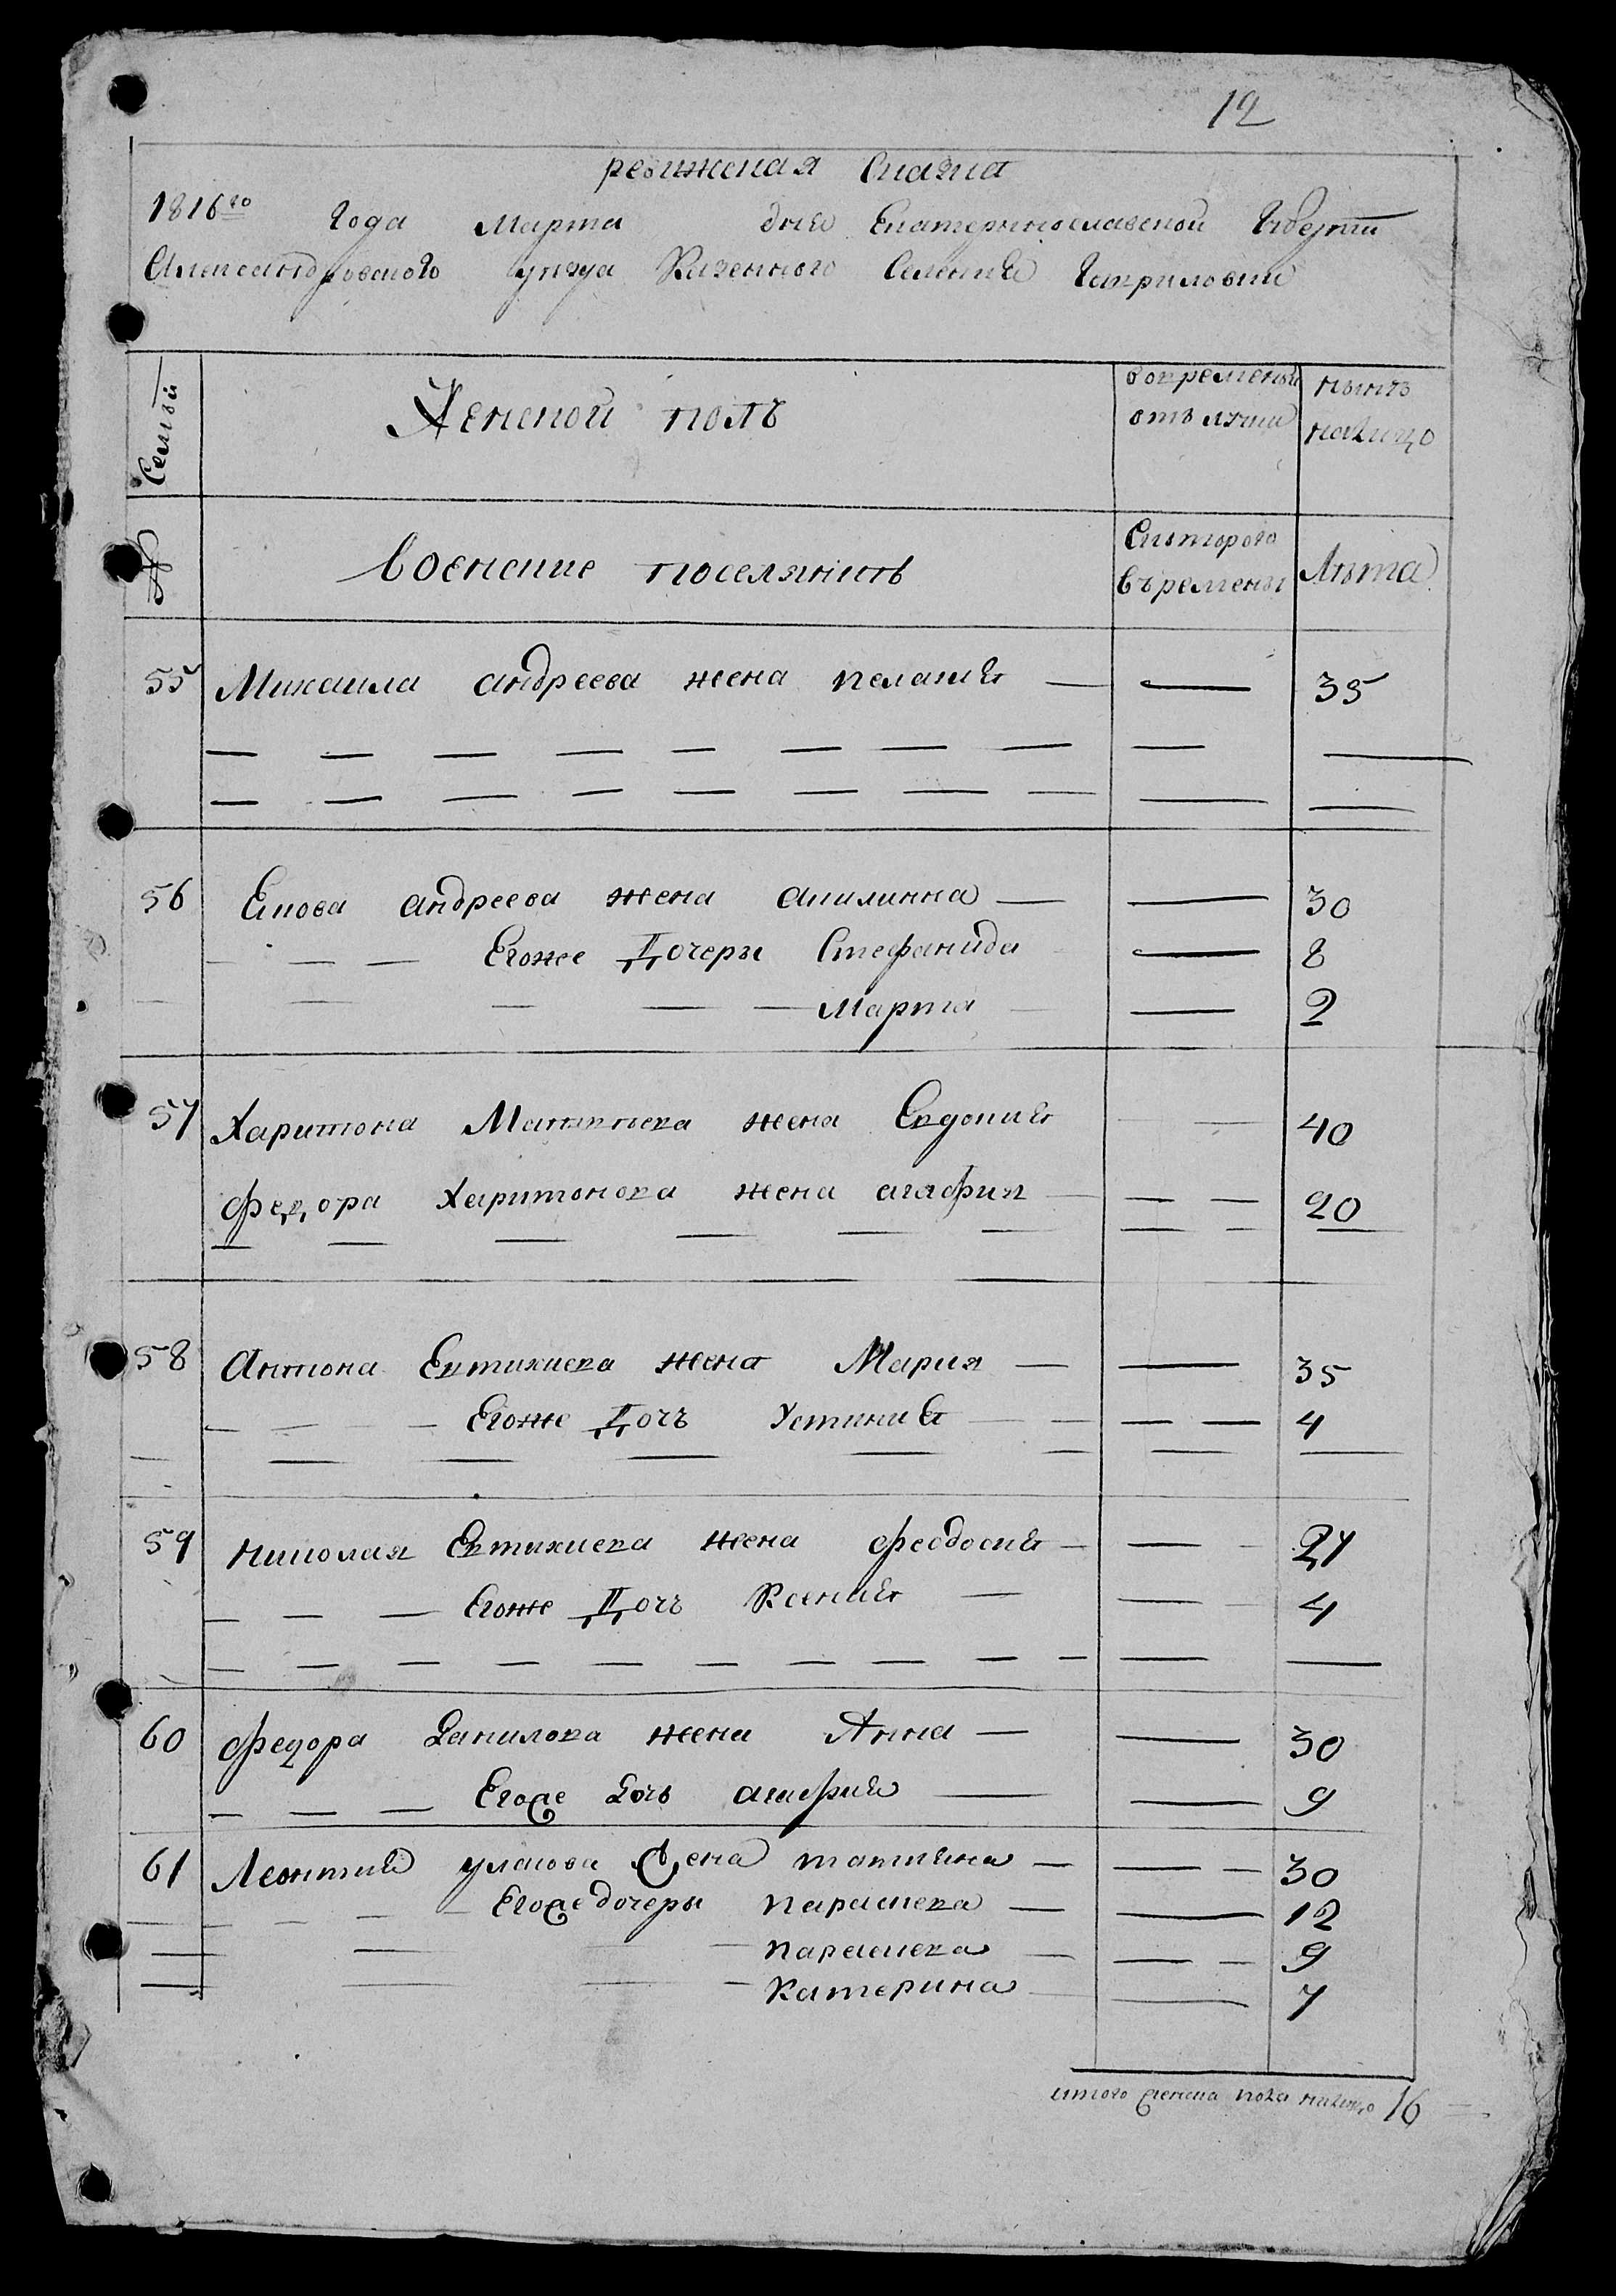 12
ревижская Скаска
1816го Года Марта дня Екатеринославской Губерти
Александровского уезда Казенного Селения Гавриловки
Семьи
Женской полъ
вовременой
отълучки
нынъ
налицо
№
Военские поселянинъ
Скоторого
Въремены
Лѣта
55 Михаила андреева жена пелагия — — 35
56 Якова андреева жена акилинна — — 30
Егоже Дочери Стефанида — 8
Марта — 2
57 Харитона Матвеева жена Евдокия — 40
Федора Харитонова жена агафия — — 20
58 Антона Евтихиева жена Мария — — 35
Егоже Дочъ Устиния — — 4
59 Николая Евтихиева жена феодосия — — 27
Егоже Дочъ Ксения — — 4
60 Федора Данилова жена Анна — — 30
Егоже Дочъ агафия — — 9
61 Леонтия уласова жена татияна — — 30
Егоже дочеры параскева — — 12
параскева — — 9
Катерина — — 7
итого женска пола налицо 16